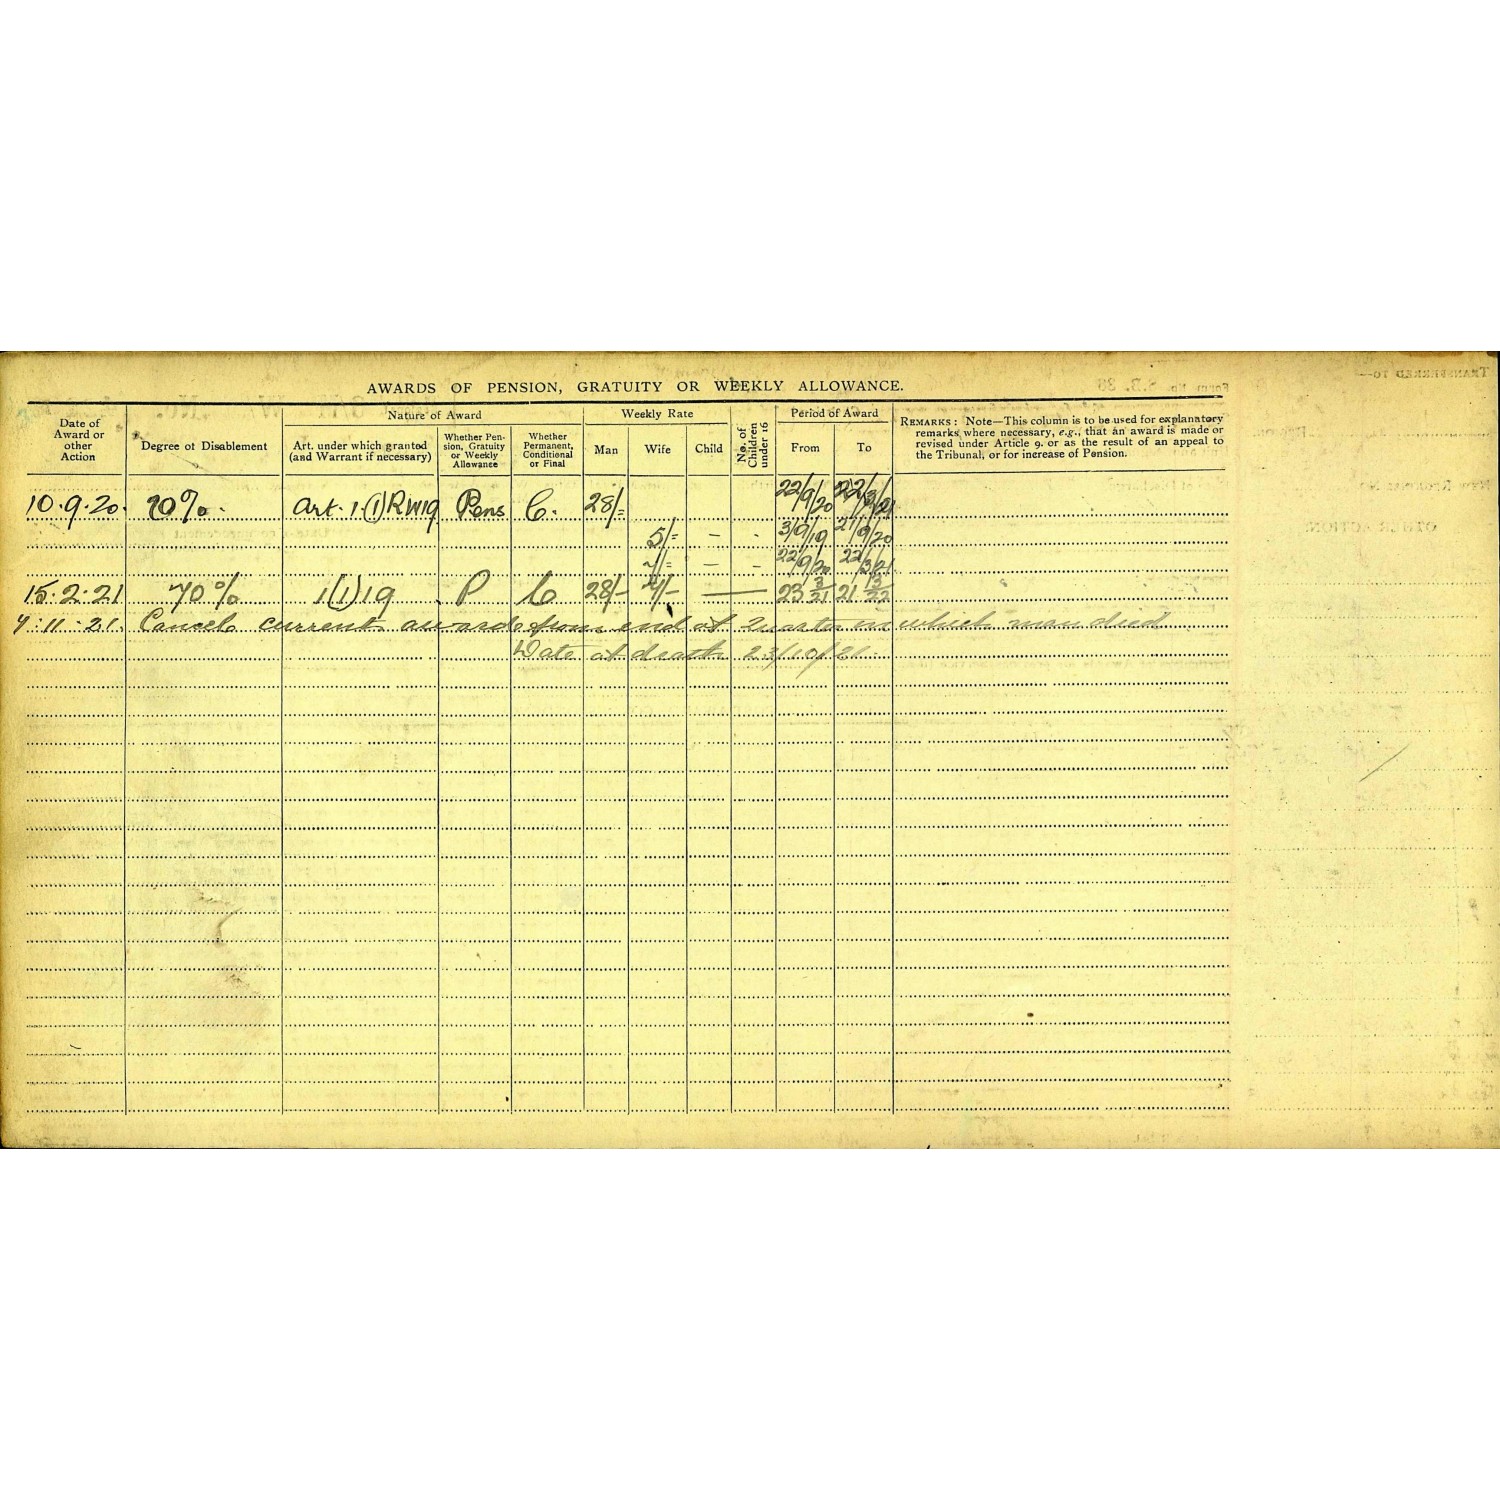 AWARDS OF PENSION, GRATUITY OR WEEKLY ALLOWANCE.
Date of Award or other Action
Degree of Disablement
Nature of Award
Art. under which granted (and Warrant if necessary)
Whether Pension, Gratuity or Weekly Allowance
Whether Permanent, Conditional or Final
Weekly Rate
Man Wife Child
No. of Children under 16
Period of Award
From To
REMARKS: Note—This column is to be used for explanatory
remarks where necessary, e.g., that an award is made or
revised under Article 9, or as the result of an appeal to
the Tribunal, or for increase of Pension.
10.9.20. 70%. Art. 1 (1) RW19 Pens C. 28/= 22/9/20 22/3/21
5/= - - 3/9/19 21/9/20
7/= - - 22/9/20 22/3/21
15.2.21 70% 1(1)19 P C 28/- 7/- — 23 3/21 21 3/22
7.11.21. Cancel current award from end of Quarter in which man died
Date of death 23/10/21.
TRANSFERRED TO—
OTHER ACTION: